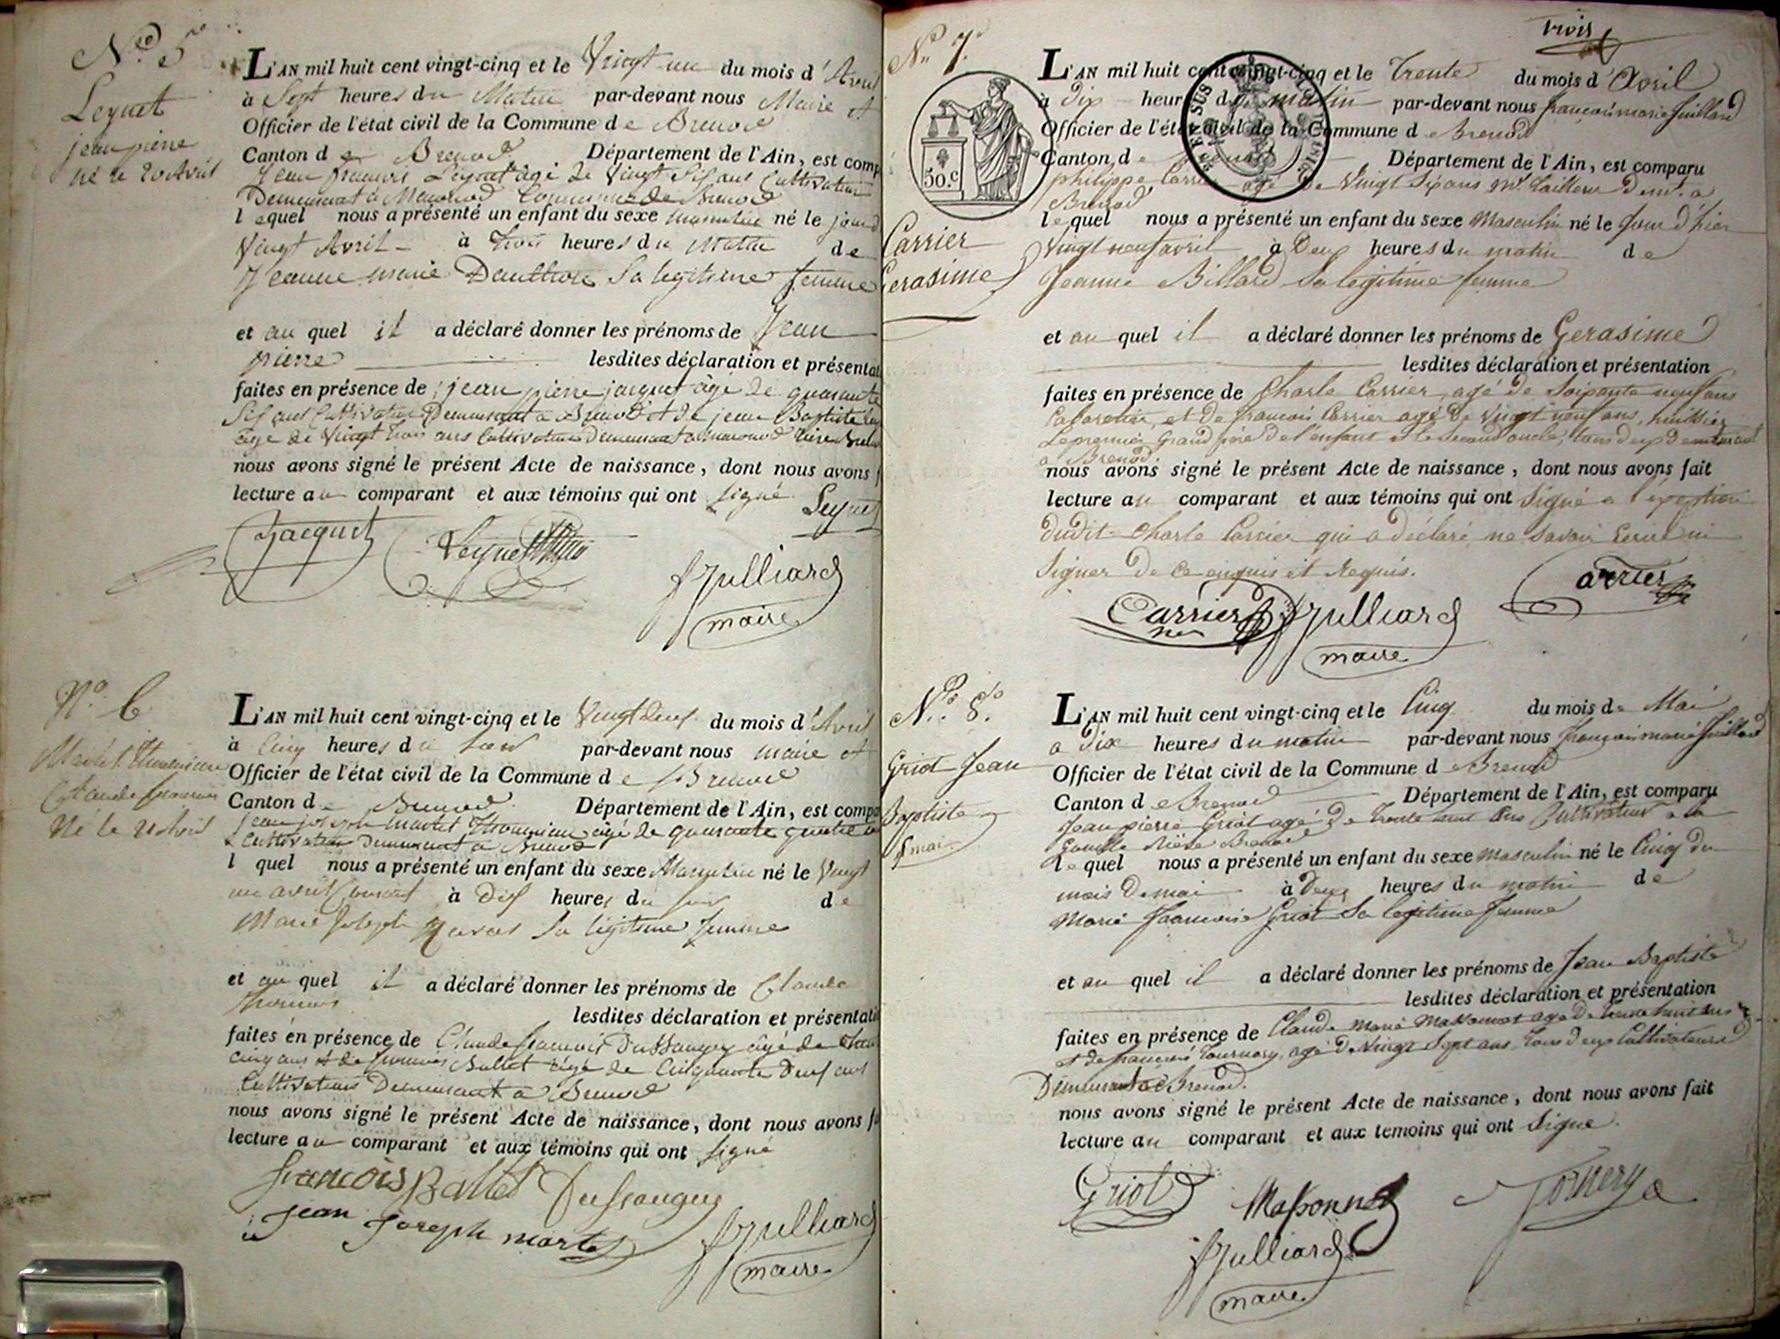 No 5
Leynet
jean pierre
né le 20 Avril
L'AN mil huit cent vingt-cinq et le Vingt un du mois d'Avril
à Sept heures du Matin par-devant nous Maire et
Officier de l'état civil de la Commune de Brenod
Canton de Brenod Département de l'Ain, est comp
Jean françois Leynet agé de Vingt Six ans Cultivateur
Demeurant à Commune de Brenod
lequel nous a présenté un enfant du sexe masculin né le jour
Vingt Avril à trois heures du Matin de
Jeanne marie Sa legitime femme
et au quel il a déclaré donner les prénoms de Jean
pierre lesdites déclaration et présentat
faites en présence de jean pierre jacquet âgé de quarante
Six ans Cultivateur Demeurant à Brenod et de jean Baptiste
âgé de Vingt trois ans Cultivateur Demeurant
nous avons signé le présent Acte de naissance, dont nous avons f
lecture au comparant et aux témoins qui ont signé Leynet
Jacquet Leynet
Julliard
maire
No 6
Claude françois
Né le 21 Avril
L'AN mil huit cent vingt-cinq et le Vingt Deux du mois d'Avril
à Cinq heures du Soir par-devant nous maire et
Officier de l'état civil de la Commune de Brenod
Canton de Brenod Département de l'Ain, est compa
jean joseph martel âgé de quarante quatre
Cultivateur Demeurant à Brenod
l quel nous a présenté un enfant du sexe Masculin né le Vingt
un avril Courant à Dix heures du Soir de
Marie Joseph Sa légitime femme
et au quel il a déclaré donner les prénoms de Claude
françois
lesdites déclaration et présentati
faites en présence de Claude françois Dussauguey âgé de
cinq ans et de françois Ballet âgé de Cinquante Deux ans
Cultivateurs Demeurant à Brenod
nous avons signé le présent Acte de naissance, dont nous avons f
lecture au comparant et aux témoins qui ont signé
francois Ballet
jean joseph martel Julliard
maire
trois
No 7.
50.c
Carrier
Gerasime
L'AN mil huit cent vingt-cinq et le trente du mois d'Avril
à dix heures du matin par-devant nous françois marie Juilliard
Officier de l'état civil de la Commune de Brenod
Canton de Département de l'Ain, est comparu
philippe Carrier agé de Vingt Six ans md tailleur demt a
Brenod
lequel nous a présenté un enfant du sexe Masculin né le Jour d'hier
vingt neuf avril à Deux heures du matin de
Jeanne Billard Sa legitime femme
et au quel il a déclaré donner les prénoms de Gerasime
lesdites déclaration et présentation
faites en présence de Charle Carrier, agé de Soixante neuf ans
Cabaretier, et de francois Carrier agé de Vingt neuf ans, huissier
Le premier Grand père de l'enfant et le second oncle, tous deux demeurant
a Brenod.
nous avons signé le présent Acte de naissance, dont nous avons fait
lecture au comparant et aux témoins qui ont Signé a l'exception
dudit Charle Carrier qui a déclaré ne savoir Ecrire ni
Signer de ce enquis et Requis.
Carrier
Carrier Julliard
maire
No 8.
Griot Jean
Baptiste
5 mai
L'AN mil huit cent vingt-cinq et le Cinq du mois de Mai
a dix heures du matin par-devant nous françois marie Juilliard
Officier de l'état civil de la Commune de Brenod
Canton de Brenod Département de l'Ain, est comparu
Jean pierre Griot agé de trente huit ans Cultivateur a la
Brenod
lequel nous a présenté un enfant du sexe masculin né le Cinq du
mois de mai à Deux heures du matin de
Marie francoise Griot Sa legitime femme
et au quel il a déclaré donner les prénoms de Jean Baptiste
lesdites déclaration et présentation
faites en présence de Claude Marie Massonnet agé de trente huit ans
et de françois Tournery, agé de Vingt Sept ans, tous deux Cultivateurs
Demeurant a Brenod.
nous avons signé le présent Acte de naissance, dont nous avons fait
lecture au comparant et aux temoins qui ont Signé.
Griot Massonnet
Julliard
maire